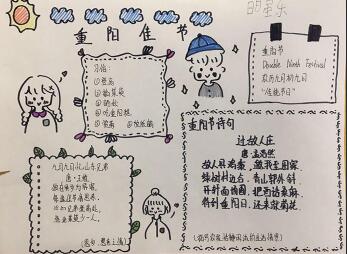 重阳佳节
习俗:
①登高
②插茱萸
③晒秋
④吃重阳糕
⑤赏菊
⑥放纸鸢
重阳节
Double Ninth Festival
农历九月初九日
"传统节日"
九月九日忆山东兄弟
唐·王维
独在异乡为异客,
每逢佳节倍思亲。
遥知兄弟登高处,
遍插茱萸少一人。
重阳节诗句
过故人庄
唐·孟浩然
故人具鸡黍,邀我至田家。
绿树村边合,青山郭外斜。
开轩面场圃,把酒话桑麻。
待到重阳日,还来就菊花。